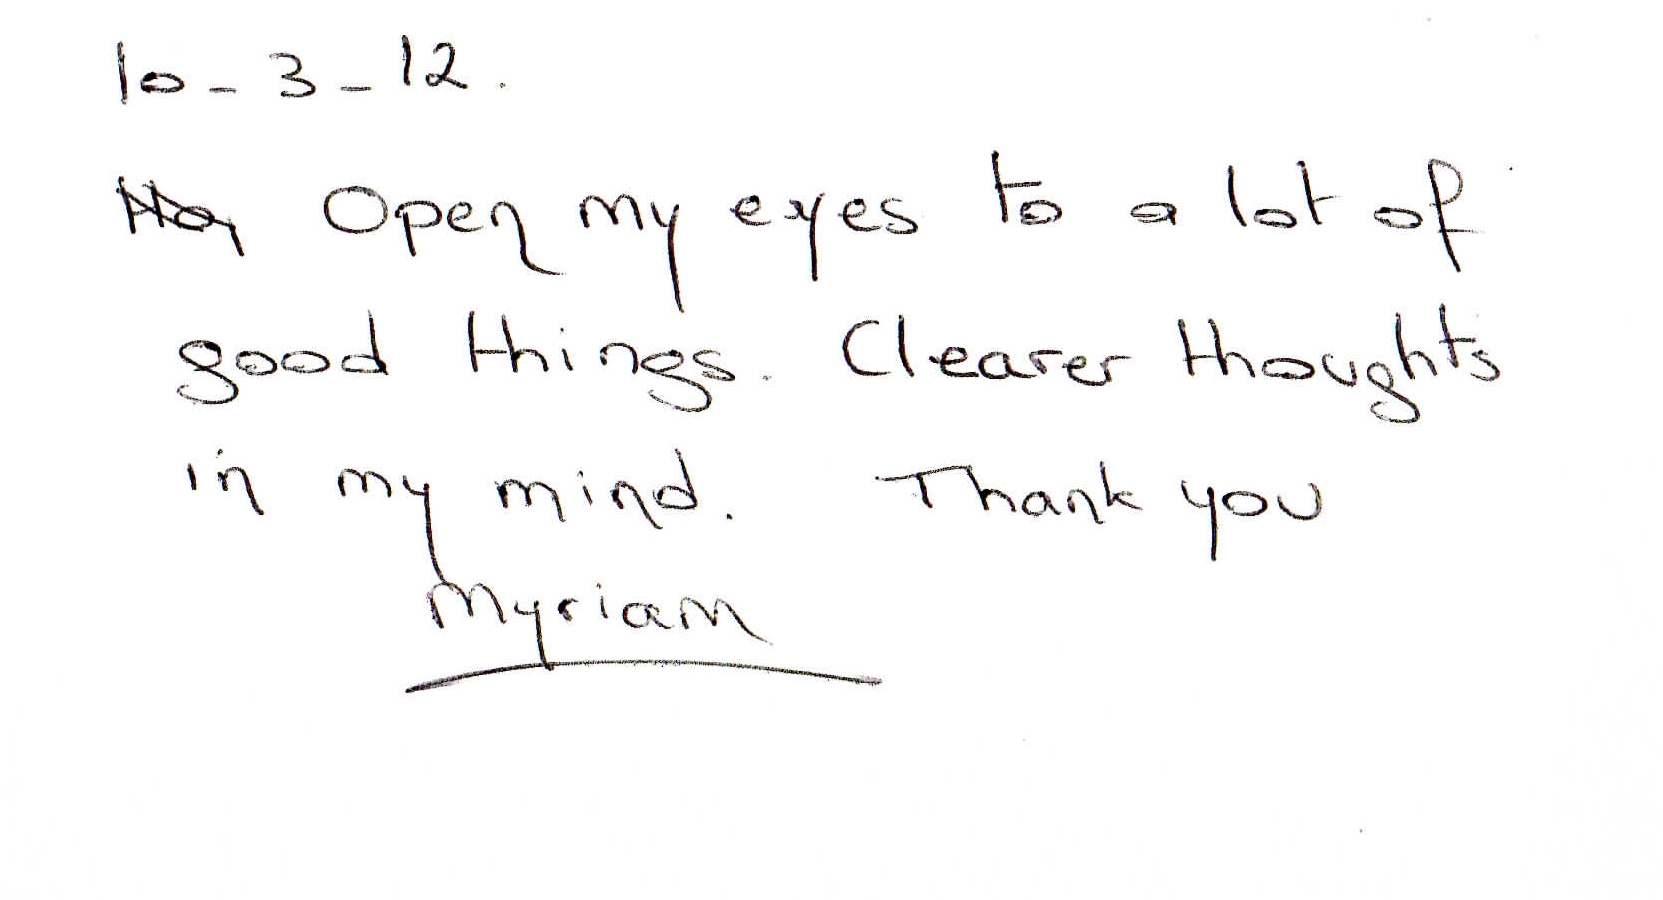 10-3-12.
Open my eyes to a lot of
good things. Clearer thoughts
in my mind. Thank you
Myriam